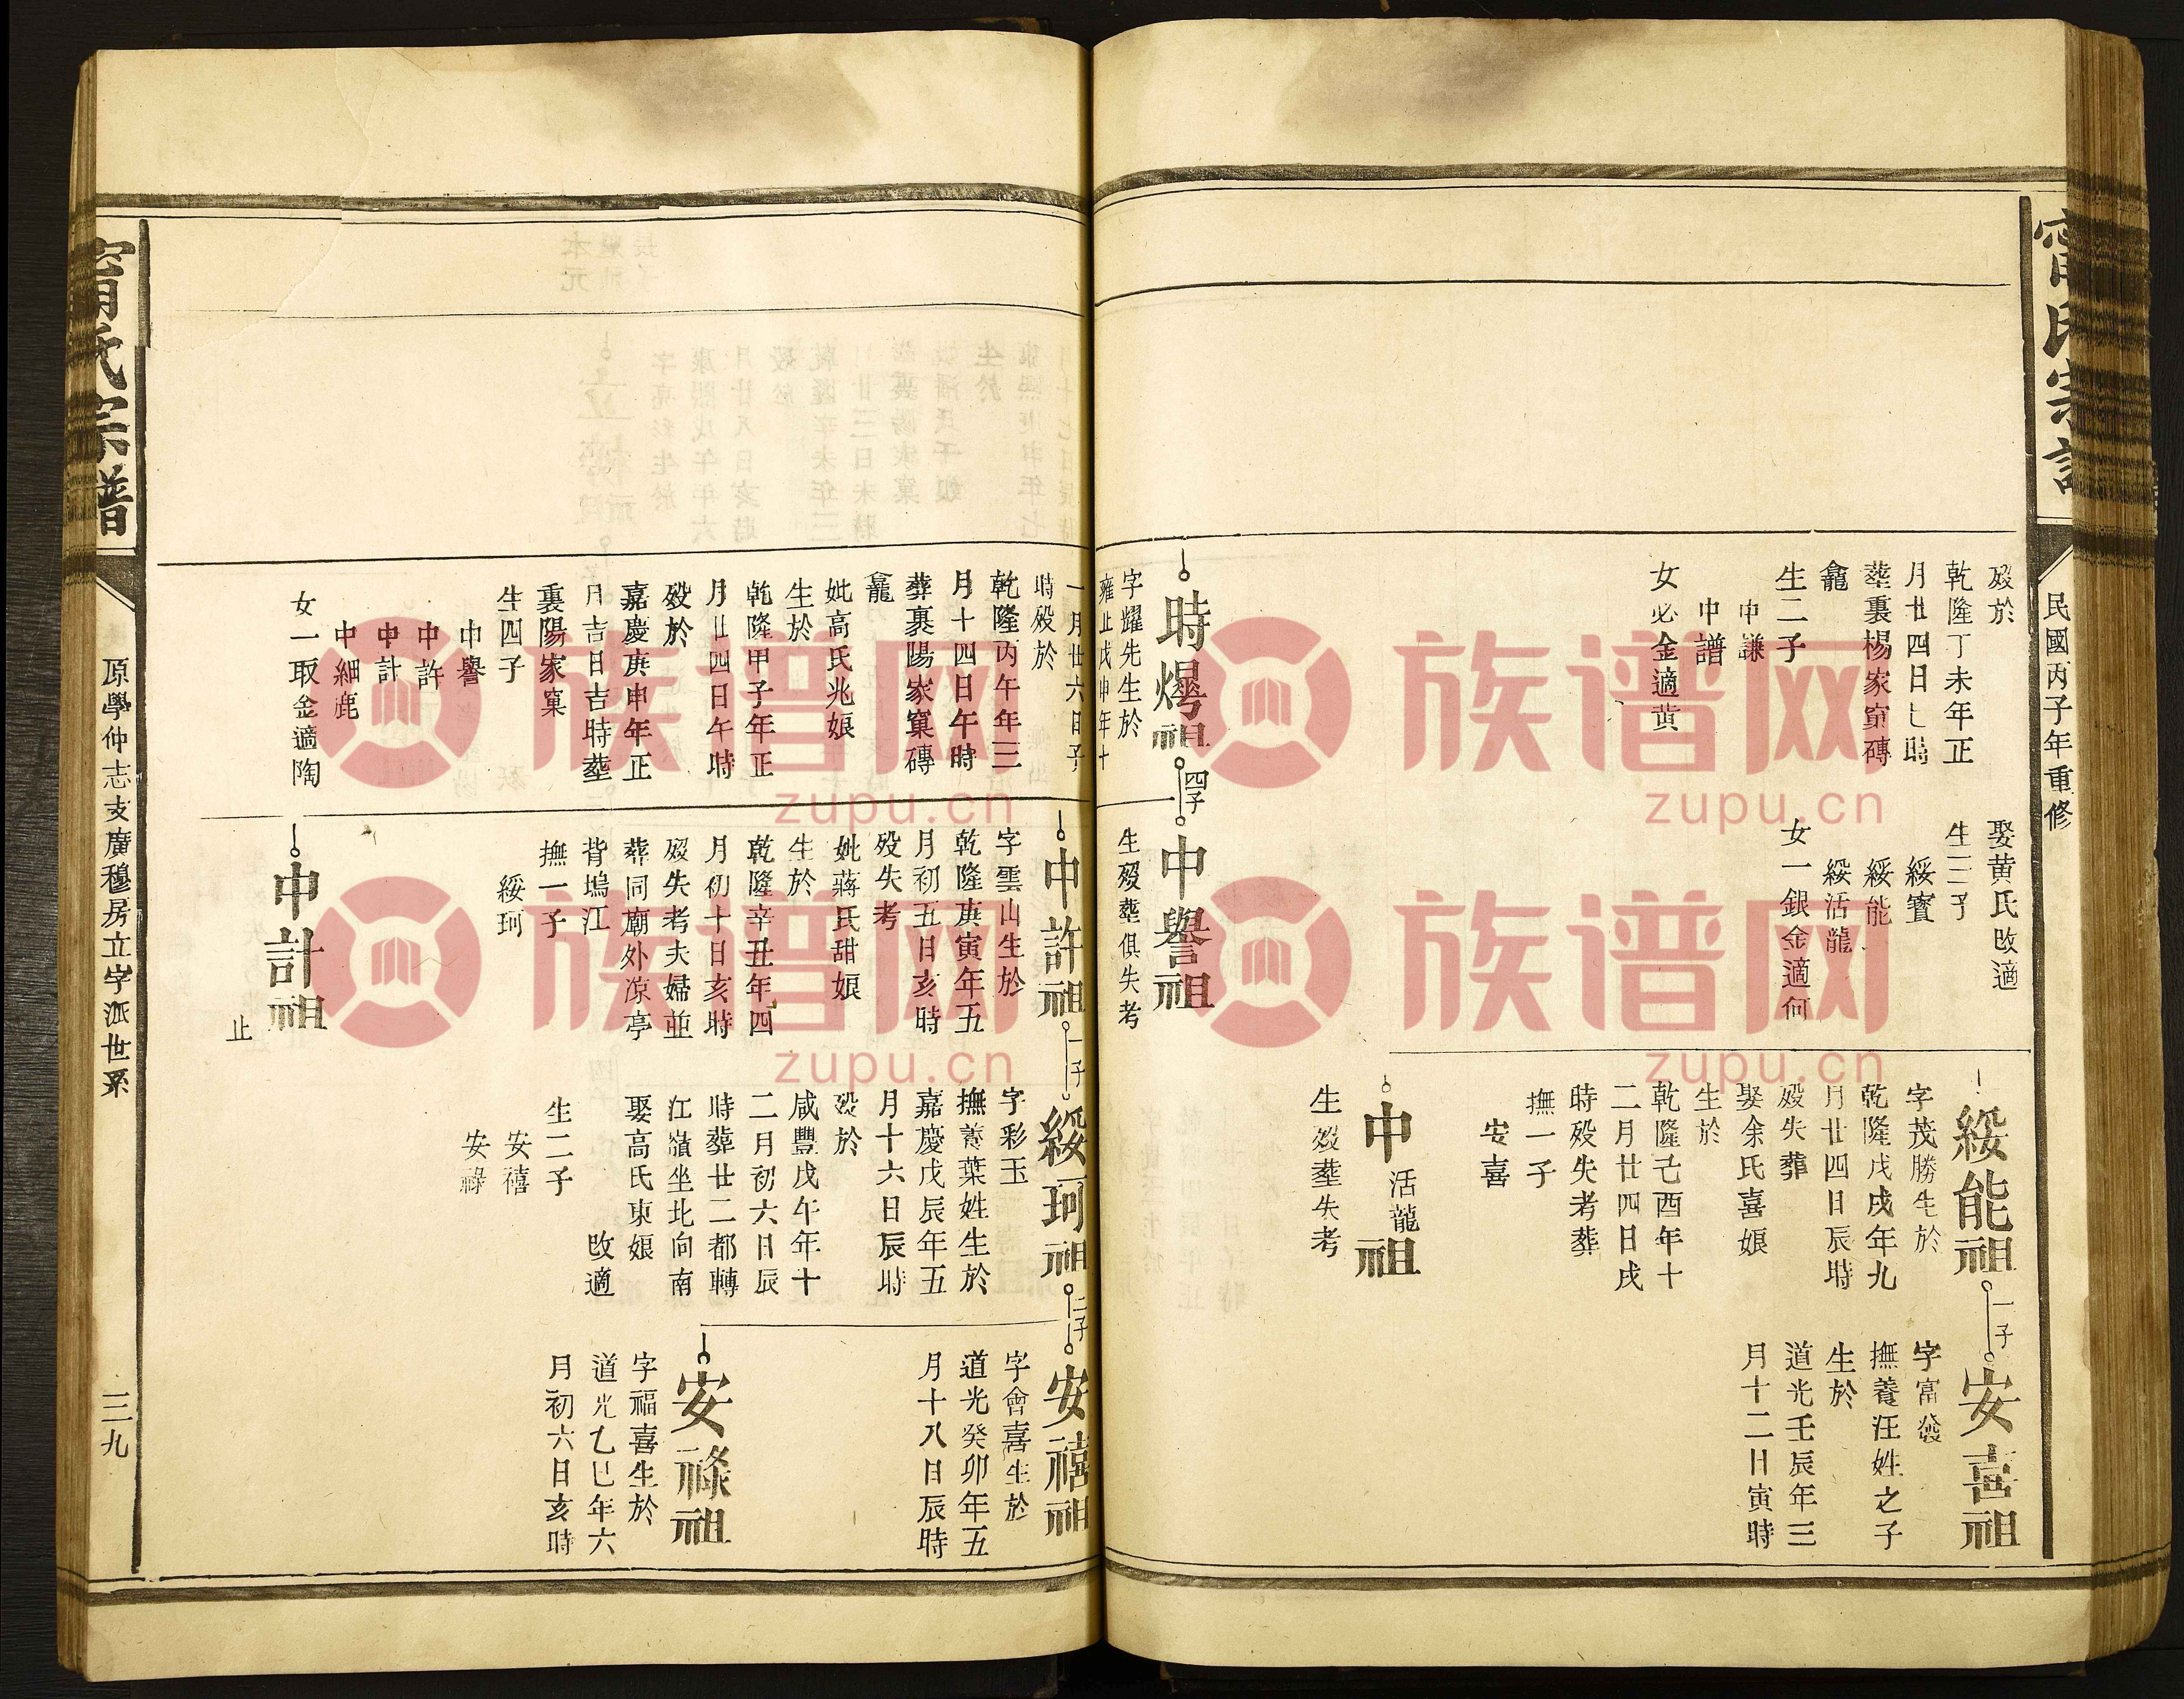 民國丙子年重修
歿於
乾隆丁未年正
月廿四日 時
塟裏楊家窠磚
龕
生二子
中謙
中譜
女必金適黄
娶黄氏改適
生三子
綏寳
綏能
綏活龍
女一銀金適何
綏能祖
一子
字茂勝生於
乾隆戊戌年九
月廿四日辰時
歿失葬
娶余氏喜娘
生於
乾隆己酉年十
二月廿四日戌
時歿失考葬
撫一子
安喜
安喜祖
字富發
撫養汪姓之子
生於
道光壬辰年三
月十二日寅時
中活龍祖
生歿塟失考
時㷸祖
四子
字耀先生於
雍正戊申年十
中譽祖
生歿塟俱失考
一月廿六日子
時歿於
乾隆丙午年三
月十四日午時
葬裏陽家窠磚
龕
妣高氏兆娘
生於
乾隆甲子年正
月廿四日午時
歿於
嘉慶庚申年正
月吉日吉時塟
裏陽家窠
生四子
中譽
中許
中計
中細鹿
女一取金適陶
中許祖
一子
字雲山生於
乾隆庚寅年五
月初五日亥時
歿失考
妣蔣氏甜娘
生於
乾隆辛丑年四
月初十日亥時
歿失考夫婦並
葬同廟外凉亭
背塢江
撫一子
綏珂
中計祖
止
綏珂祖
二子
字彩玉
撫養葉姓生於
嘉慶戊辰年五
月十六日辰時
歿於
咸豐戊午年十
二月初六日辰
時葬廿二都轉
江嶺坐北向南
娶高氏東娘
改適
生二子
安禧
安祿
安禧祖
字會喜生於
道光癸卯年五
月十八日辰時
安祿祖
字福喜生於
道光乙巳年六
月初六日亥時
甯氏宗譜
原學仲志支廣穆房立字派世系
三九
族谱网
zupu.cn
族谱网
zupu.cn
族谱网
zupu.cn
族谱网
zupu.cn